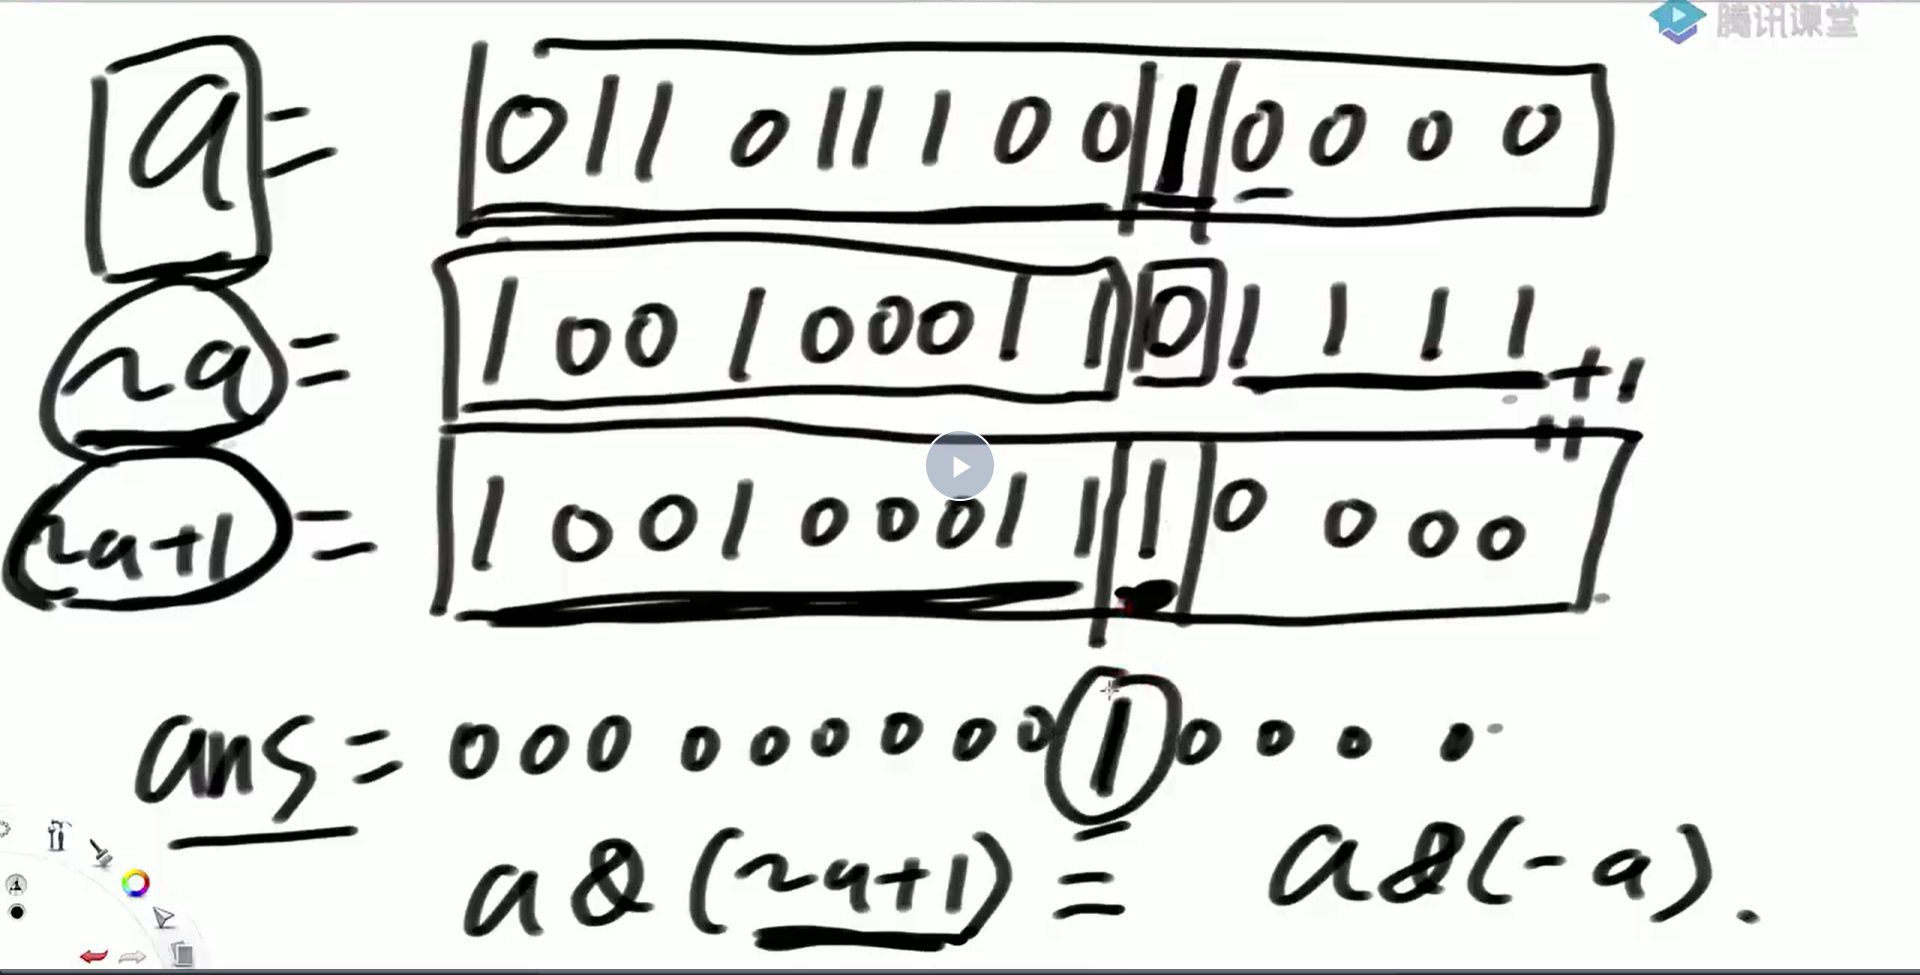 腾讯课堂
a = 011 0111 00 1 0000
~a = 1 00 1 000 1 1 0 1 1 1 1 +1
=
~a+1 = 1 00 1 000 1 1 1 0 000
ans = 000 000000 1 0000
a & (~a+1) = a & (-a).